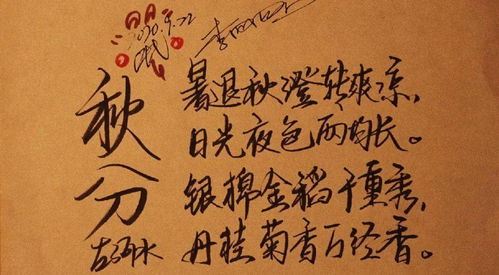 2020.9.22
秋分
暑退秋澄转爽凉，
日光夜色两均长。
银棉金稻千重秀，
丹桂菊香万径香。